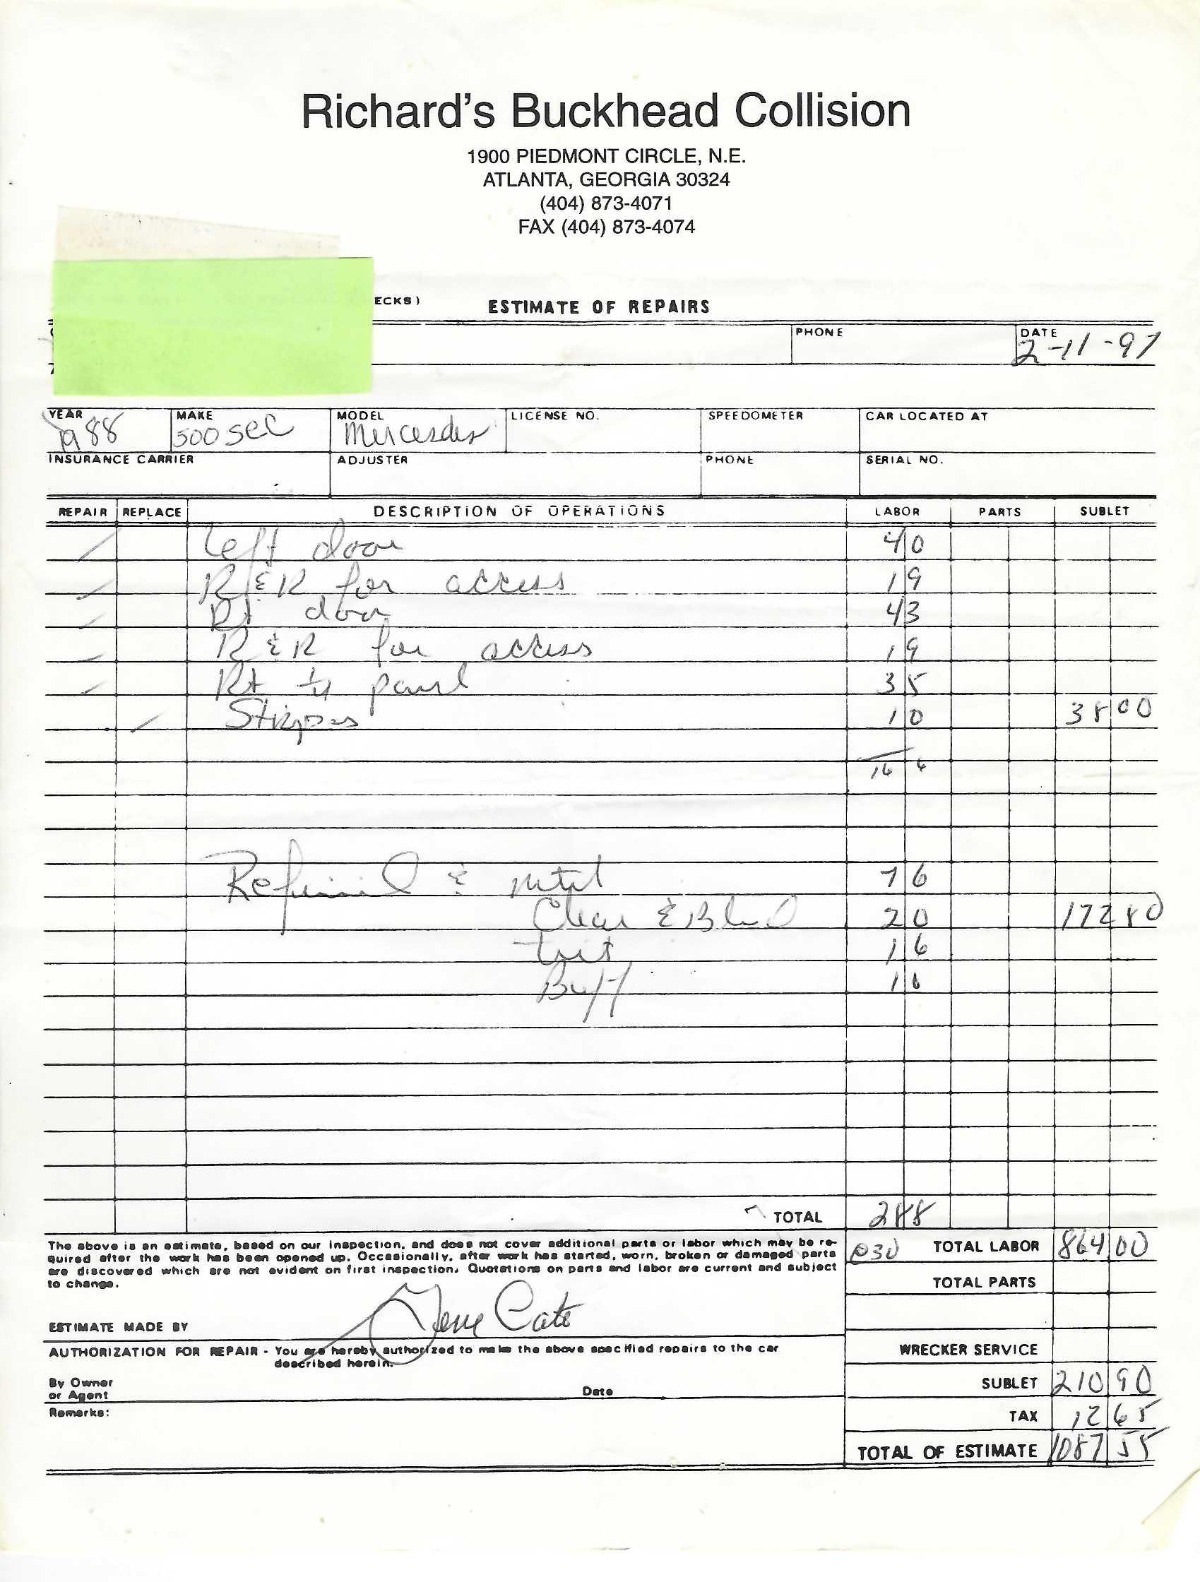 Richard's Buckhead Collision
1900 PIEDMONT CIRCLE, N.E.
ATLANTA, GEORGIA 30324
(404) 873-4071
FAX (404) 873-4074
ECKS)
ESTIMATE OF REPAIRS
PHONE DATE 2-11-97
YEAR MAKE MODEL LICENSE NO. SPEEDOMETER CAR LOCATED AT
1988 500 SEC Mercedes
INSURANCE CARRIER ADJUSTER PHONE SERIAL NO.
REPAIR REPLACE DESCRIPTION OF OPERATIONS LABOR PARTS SUBLET
Left door 4 0
R & R for access 1 9
Rt door 4 3
R & R for access 1 9
Rt 1/4 panel 3 5
Stripes 1 0 38 00
16 6
Refinish & metal 7 6
Clear & Blend 2 0 172 80
Tint 1 6
Buff 1 0
TOTAL 288
The above is an estimate, based on our inspection, and does not cover additional parts or labor which may be re-
quired after the work has been opened up. Occasionally, after work has started, worn, broken or damaged parts
are discovered which are not evident on first inspection. Quotations on parts and labor are current and subject
to change.
@30 TOTAL LABOR 864 00
TOTAL PARTS
ESTIMATE MADE BY Gene Cate
AUTHORIZATION FOR REPAIR - You are hereby authorized to make the above specified repairs to the car
described herein.
WRECKER SERVICE
By Owner
or Agent Date
SUBLET 210 90
Remarks:
TAX 12 65
TOTAL OF ESTIMATE 1087 55